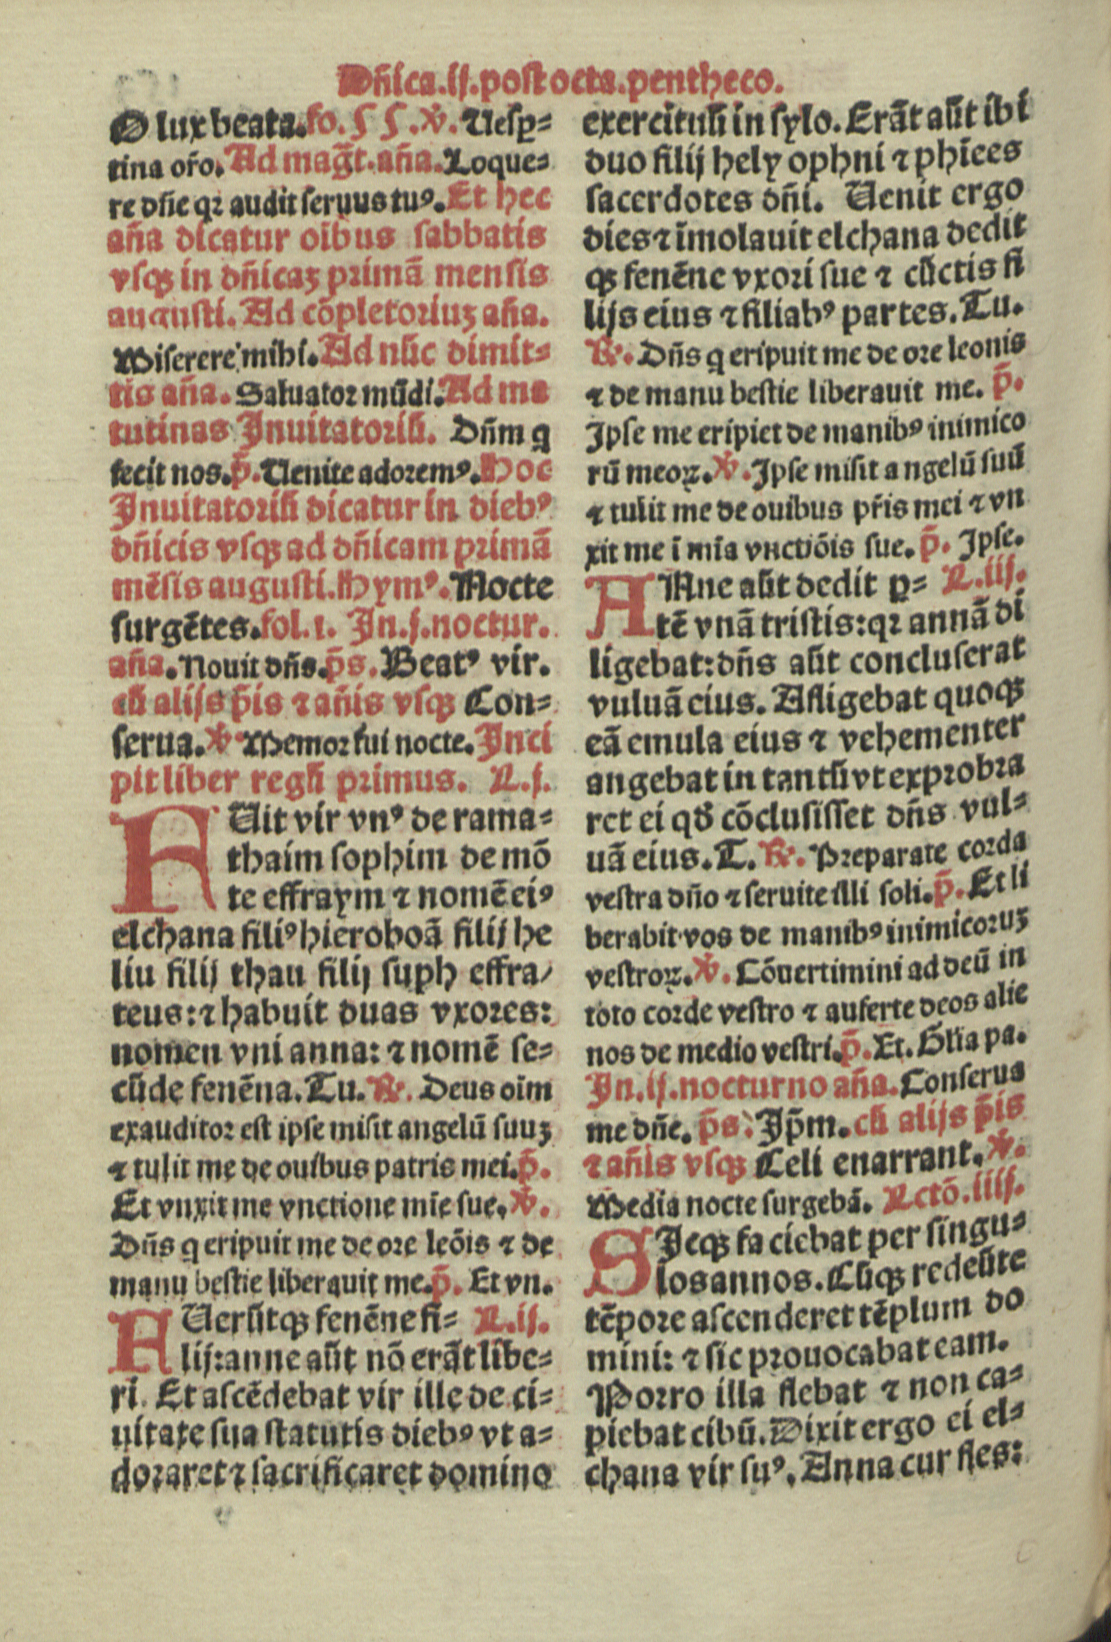 Dñica.ij.post octa.pentheco.
O lux beata.fo.55.℣.Uesp̱=
tina oro͂.Ad mag̃t.aña.Loque=
re dñe qꝛ audit seruus tuꝰ.Et hec
aña dicatur oĩbus sabbatis
vsqꝫ in dñicaꝫ primã mensis
augusti.Ad cõpletoriuꝫ aña.
Miserere mihi.Ad nũc dimit=
tis aña.Saluator mũdi.Ad ma
tutinas Inuitatoriũ. Dñm q
fecit nos.p̃.Uenite adoremꝰ.Hoc
Inuitatoriũ dicatur in diebꝰ
dñicis vsqꝫ ad dñicam primã
mẽsis augusti.Hymꝰ.Nocte
surgẽtes.fol.1. In.j.noctur.
aña.Nouit dñs.p̃s.Beatꝰ vir.
cũ alijs p̃is ⁊ añis vsqꝫ Con=
serua.℣.Memor fui nocte.Inci
pit liber regũ primus. L.j.
FUit vir vnꝰ de rama=
thaim sophim de mõ
te effraym ⁊ nomẽ eiꝰ
elchana filiꝰ hieroboã filij he
liu filij thau filij suph effra/
teus:⁊ habuit duas vxores:
nomen vni anna:⁊ nomẽ se=
cũde fenẽna.Tu.℟.Deus oĩm
exauditor est ipse misit angelũ suuꝫ
⁊ tulit me de ouibus patris mei.p̃.
Et vnxit me vnctione mĩe sue.℣.
Dñs q eripuit me de ore leõis ⁊ de
manu bestie liberauit me.p̃. Et vn.
FUerũtqꝫ fenẽne fi= L.ij.
lij:anne aũt nõ erãt libe=
ri. Et ascẽdebat vir ille de ci=
uitate sua statutis diebꝰ vt a=
doraret ⁊ sacrificaret domino
exercituũ in sylo.Erãt aũt ibi
duo filij hely ophni ⁊ phĩees
sacerdotes dñi. Uenit ergo
dies ⁊ ĩmolauit elchana dedit
qꝫ fenẽne vxori sue ⁊ cũctis fi
lijs eius ⁊ filiabꝰ partes.Tu.
℟.Dñs q eripuit me de ore leonis
⁊ de manu bestie liberauit me. p̃.
Ipse me eripiet de manibꝰ inimico
rũ meoꝝ.℣.Ipse misit angelũ suũ
⁊ tulit me de ouibus pr̃is mei ⁊ vn
xit me ĩ mĩa vnctiõis sue.p̃. Ipse.
AMne aũt dedit p̱= L.iij.
tẽ vnã tristis:qꝛ annã di
ligebat:dñs aũt concluserat
vuluã eius. Afligebat quoqꝫ
eã emula eius ⁊ vehementer
angebat in tantũ vt exprobra
ret ei qď cõclusisset dñs vul=
uã eius.T.℟.Preparate corda
vestra dño ⁊ seruite illi soli.p̃.Et li
berabit vos de manibꝰ inimicoruꝫ
vestroꝝ.℣.Cõuertimini ad deũ in
toto corde vestro ⁊ auferte deos alie
nos de medio vestri.p̃.Et.Gl̃ia pa.
In.ij.nocturno aña.Conserua
me dñe.p̃s.Ip̃m.cũ alijs p̃is
⁊ añis vsqꝫ Celi enarrant.℣.
Media nocte surgebã. Lctõ.iiij.
SIcqꝫ faciebat per singu=
los annos.Cũqꝫ redeũte
tẽpore ascenderet tẽplum do
mini:⁊ sic prouocabat eam.
Porro illa flebat ⁊ non ca=
piebat cibũ.Dixit ergo ei el=
chana vir suꝰ.Anna cur fles: